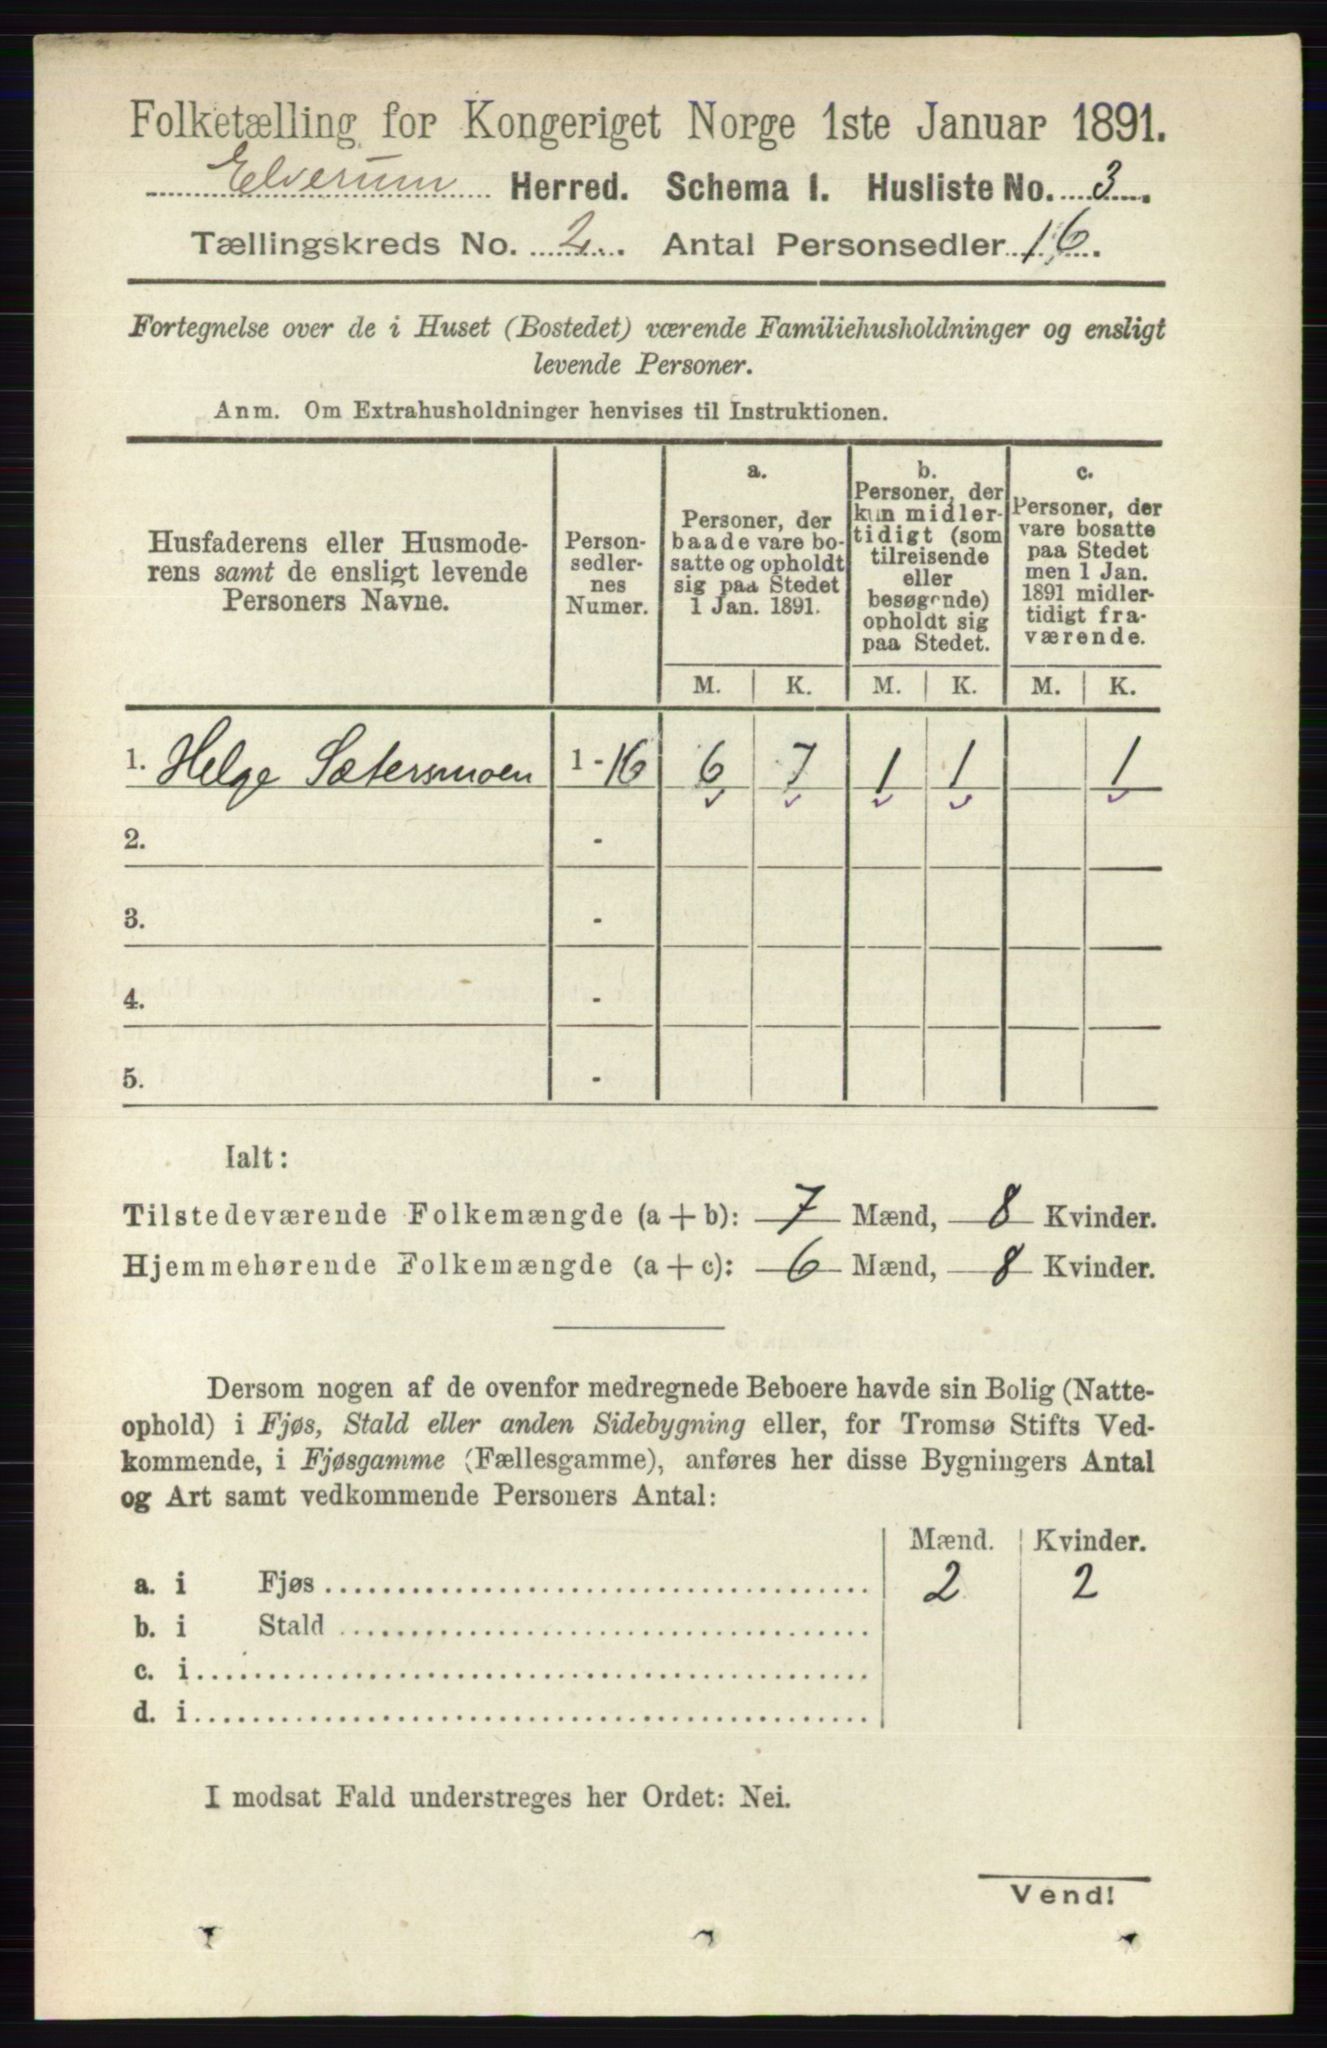 Folketælling for Kongeriget Norge 1ste Januar 1891.
Elverum Herred. Schema I. Husliste No. 3.
Tællingskreds No. 2. Antal Personsedler 16.
Fortegnelse over de i Huset (Bostedet) værende Familiehusholdninger og ensligt
levende Personer.
Anm. Om Extrahusholdninger henvises til Instruktionen.
Husfaderens eller Husmode-
rens samt de ensligt levende
Personers Navne.
Person-
sedler-
nes
Numer.
a.
Personer, der
baade vare bo-
satte og opholdt
sig paa Stedet
1 Jan. 1891.
b.
Personer, der
kun midler-
tidigt (som
tilreisende
eller
besøgende)
opholdt sig
paa Stedet.
c.
Personer, der
vare bosatte
paa Stedet
men 1 Jan.
1891 midler-
tidigt fra-
værende.
M. K. M. K. M. K.
1. Helge Sætersmoen 1 - 16 6 7 1 1 1
2. -
3. -
4. -
5. -
Ialt:
Tilstedeværende Folkemængde (a + b): 7 Mænd, 8 Kvinder.
Hjemmehørende Folkemængde (a + c): 6 Mænd, 8 Kvinder.
Dersom nogen af de ovenfor medregnede Beboere havde sin Bolig (Natte-
ophold) i Fjøs, Stald eller anden Sidebygning eller, for Tromsø Stifts Ved-
kommende, i Fjøsgamme (Fællesgamme), anføres her disse Bygningers Antal
og Art samt vedkommende Personers Antal:
Mænd. Kvinder.
a. i Fjøs 2 2
b. i Stald
c. i
d. i
I modsat Fald understreges her Ordet: Nei.
Vend!